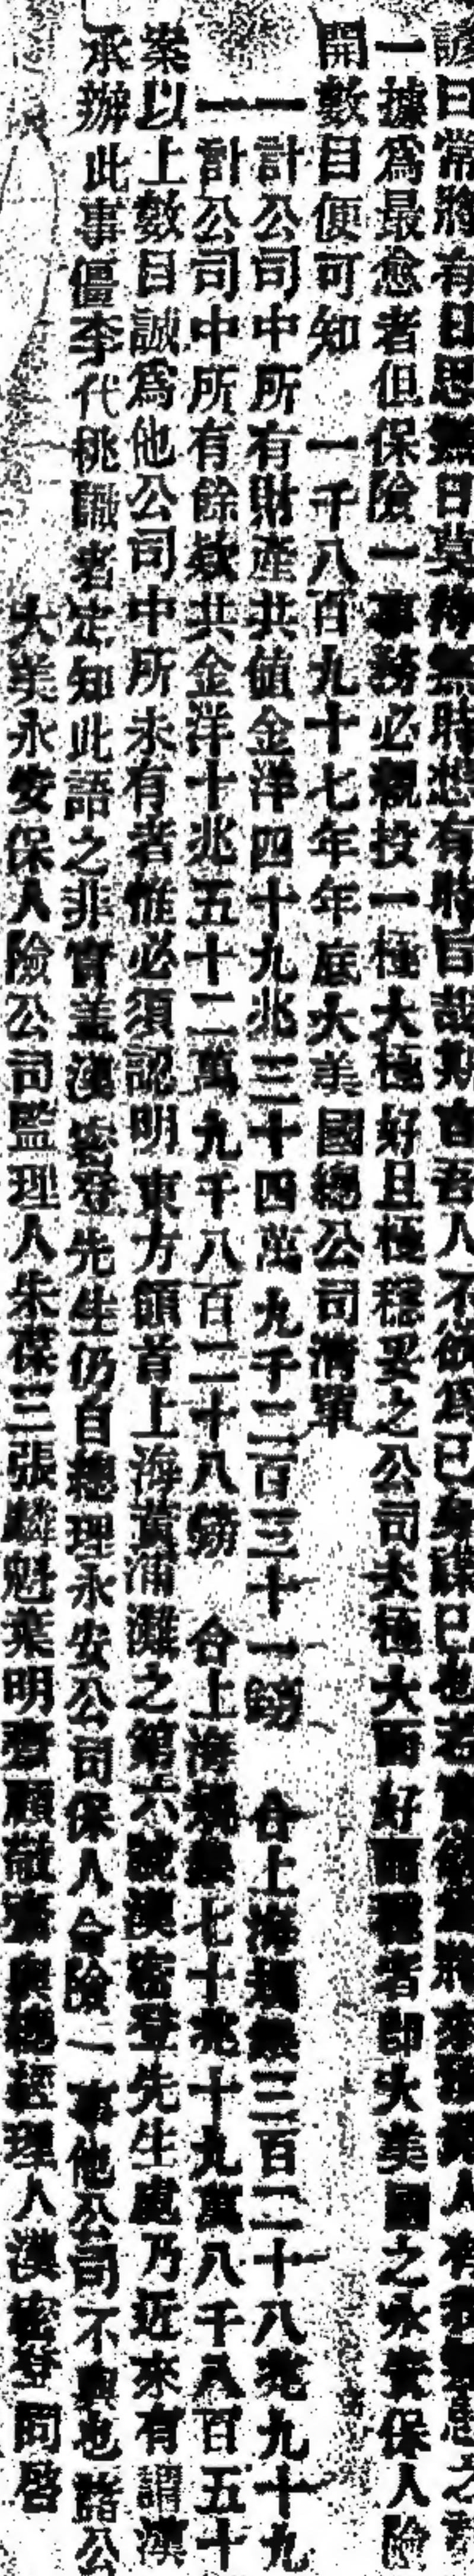 諺曰常將有日思無日莫待無時想有時旨哉斯言吾人不欲爲己身謀已也
一據爲最愈者但保險一事務必親投一極大極好且極穩妥之公司夫極大而好而穩者即大美國之永安保人險
開數目便可知 一千八百九十七年年底大美國總公司清單
一計公司中所有財產共値金洋四十九兆三十四萬九千二百三十一鎊 合上海規銀三百二十八兆九十九
一計公司中所有餘欵共金洋十兆五十二萬九千八百二十八鎊 合上海規銀七十兆十九萬八千八百五十
案以上數目誠爲他公司中所未有者惟必須認明東方領首上海黃浦灘之第六號漢密登先生處乃近來有謂漢
承辦此事僵李代桃識者定知此語之非實蓋漢密登先生仍自總理永安公司保人命險一事他公司不與也諸公
大美永安保人險公司監理人朱葆三張麟魁葉明齋顧敬齋與總經理人漢密登同啓